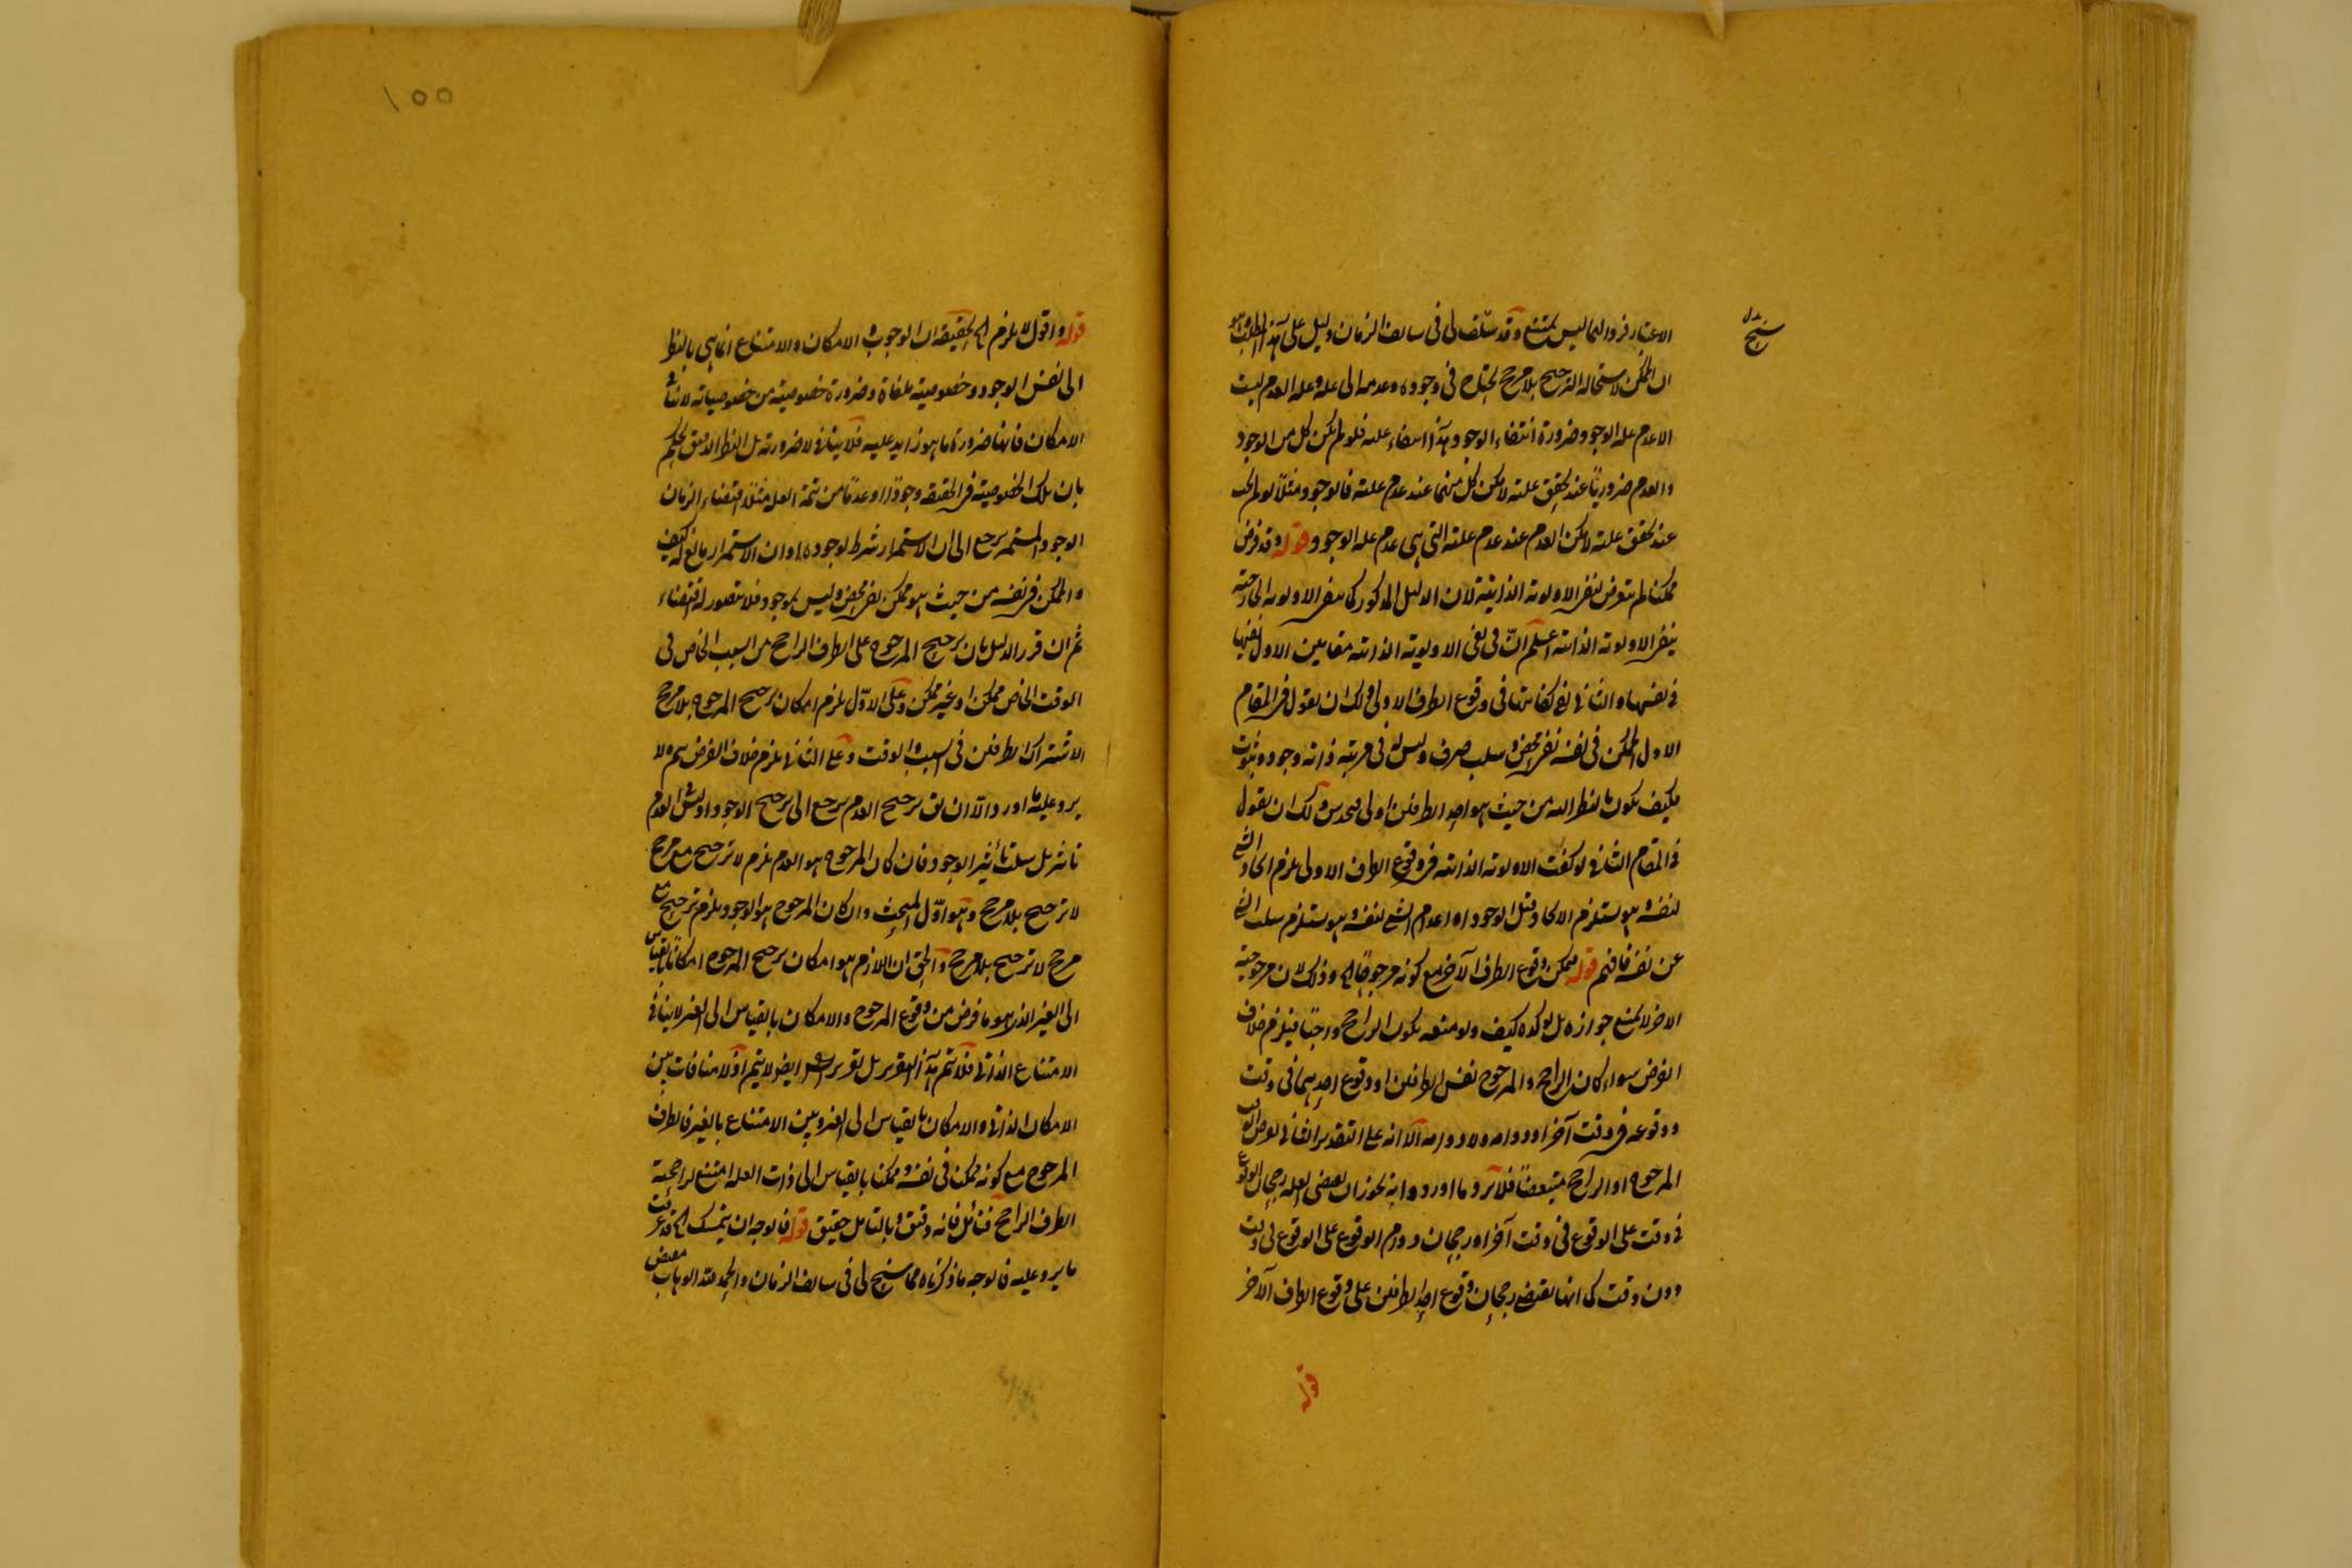 الاعتبار فزوالها ليس بممتنع وقد سنح لى فى سالف الزمان دليل على هذا المطلب وهو
ان الممكن لاستحالة الترجيح بلا مرجح يحتاج فى وجوده وعدمه الى علة وعلة العدم ليست
الا عدم علة الوجود ضرورة انتفاء الوجود عند انتفاء علته فلو لم يكن كل من الوجود
والعدم ضروريا عند تحقق علته لامكن كل منهما عند عدم علته فالوجود مثلا لو لم يجب
عند تحقق علته لامكن العدم عند عدم علته التى هى عدم علة الوجود قوله وقد فرض
ممكنا لم يتعرض لنفى الاولوية الذاتية لان الدليل المذكور كما ينفى الاولوية الخارجية
ينفى الاولوية الذاتية اعلم ان فى نفى الاولوية الذاتية مقامين الاول نفيها
فى نفسها والثانى نفى كفايتها فى وقوع الطرف الاولى ولك ان تقول فى المقام
الاول الممكن فى نفسه نفى محض وسلب صرف وليس له فى مرتبة ذاته وجود وثبوت
فكيف يكون بالنظر اليه من حيث هو احد الطرفين اولى فتحدس ولك ان تقول
فى المقام الثانى لو كفت الاولوية الذاتية فى وقوع الطرف الاولى يلزم ايجاد الشئ
لنفسه وهو يستلزم الايجاد قبل الوجود او اعدام الشئ لنفسه وهو يستلزم سلب الشئ
عن نفسه فافهم قوله فيمكن وقوع الطرف الآخر مع كونه مرجوحا الخ وذلك لان مرجوحية
الاخر لا تمنع جوازه بل تؤكده كيف ولو منعه يكون الراجح واجبا فيلزم خلاف
الفرض سواء كان الراجح والمرجوح نفس الطرفين او وقوع احدهما فى وقت
ووقوعه فى وقت آخر او دوامه ولا دوامه الا انه على التقدير الثانى
المرجوح او الراجح متبعضا فلا يرد ما اورد و انه يجوز ان يقتضى العلة رجحان الوقوع
فى وقت على الوقوع فى وقت آخر او رجحان دوام الوقوع على الوقوع فى وقت
دون وقت كما انها تقتضى رجحان وقوع احد الطرفين على وقوع الطرف الآخر
قوله
سنح
١٥٥
قوله واقول لا يلزم الخ لحقيقة ان الوجوب و الامكان والامتناع انما هى بالنظر
الى نفس الوجود وخصوصيته ملغاة وضرورة خصوصية من خصوصياته لا ينافى
الامكان فانها ضرورة ما هو زايد عليه فلا ينافى لا ضرورته بل النظر الدقيق يحكم
بان تلك الخصوصية فى الحقيقة وجودا او عدما من تتمة العلة مثلا اقتضاء الزمان
الوجود المستمر يرجع الى ان الاستمرار شرط لوجوده او ان الاستمرار مانع له كيف
والممكن فى نفسه من حيث هو ممكن نفى محض وليس بموجود فلا يتصور له اقتضاء
ثم ان قرر الدليل بان ترجيح المرجوح على الطرف الراجح من السبب الخاص فى
الوقت الخاص ممكن او غير ممكن وعلى الاول يلزم امكان ترجيح المرجوح بلا مرجح
لاشتراك الطرفين فى السبب والوقت وعلى الثانى يلزم خلاف الفرض لا
يرد عليه ما اورد الا ان يق ترجيح العدم يرجع الى ترجيح الوجود اذ ليس العدم
تاثير بل سلب تأثير الوجود فان كان المرجوح هو العدم يلزم لا ترجيح مع مرجح
لا ترجيح بلا مرجح وهو اول المبحث وان كان المرجوح هو الوجود يلزم ترجيح مع
مرجح لا ترجيح بلا مرجح والحق ان اللازم هو امكان ترجيح المرجوح امكانا بالقياس
الى الغير الذى هو ما فرض من وقوع المرجوح والامكان بالقياس الى الغير لا ينافى
الامتناع الذاتى فلا يتم هذا التقرير بل تقرير ايضا لا يتم اذ لا منافات بين
الامكان الذاتى والامكان بالقياس الى الغير وبين الامتناع بالغير فالطرف
المرجوح مع كونه ممكن فى نفسه وممكنا بالقياس الى ذات العلة امتنع لراجحية
الطرف الراجح فتأمل فانه دقيق وبالتامل حقيق قوله فالوجه ان يتمسك الخ قد عرفت
ما يرد عليه فالوجه ما ذكرناه مما سنح لى فى سالف الزمان والحمد لله الوهاب